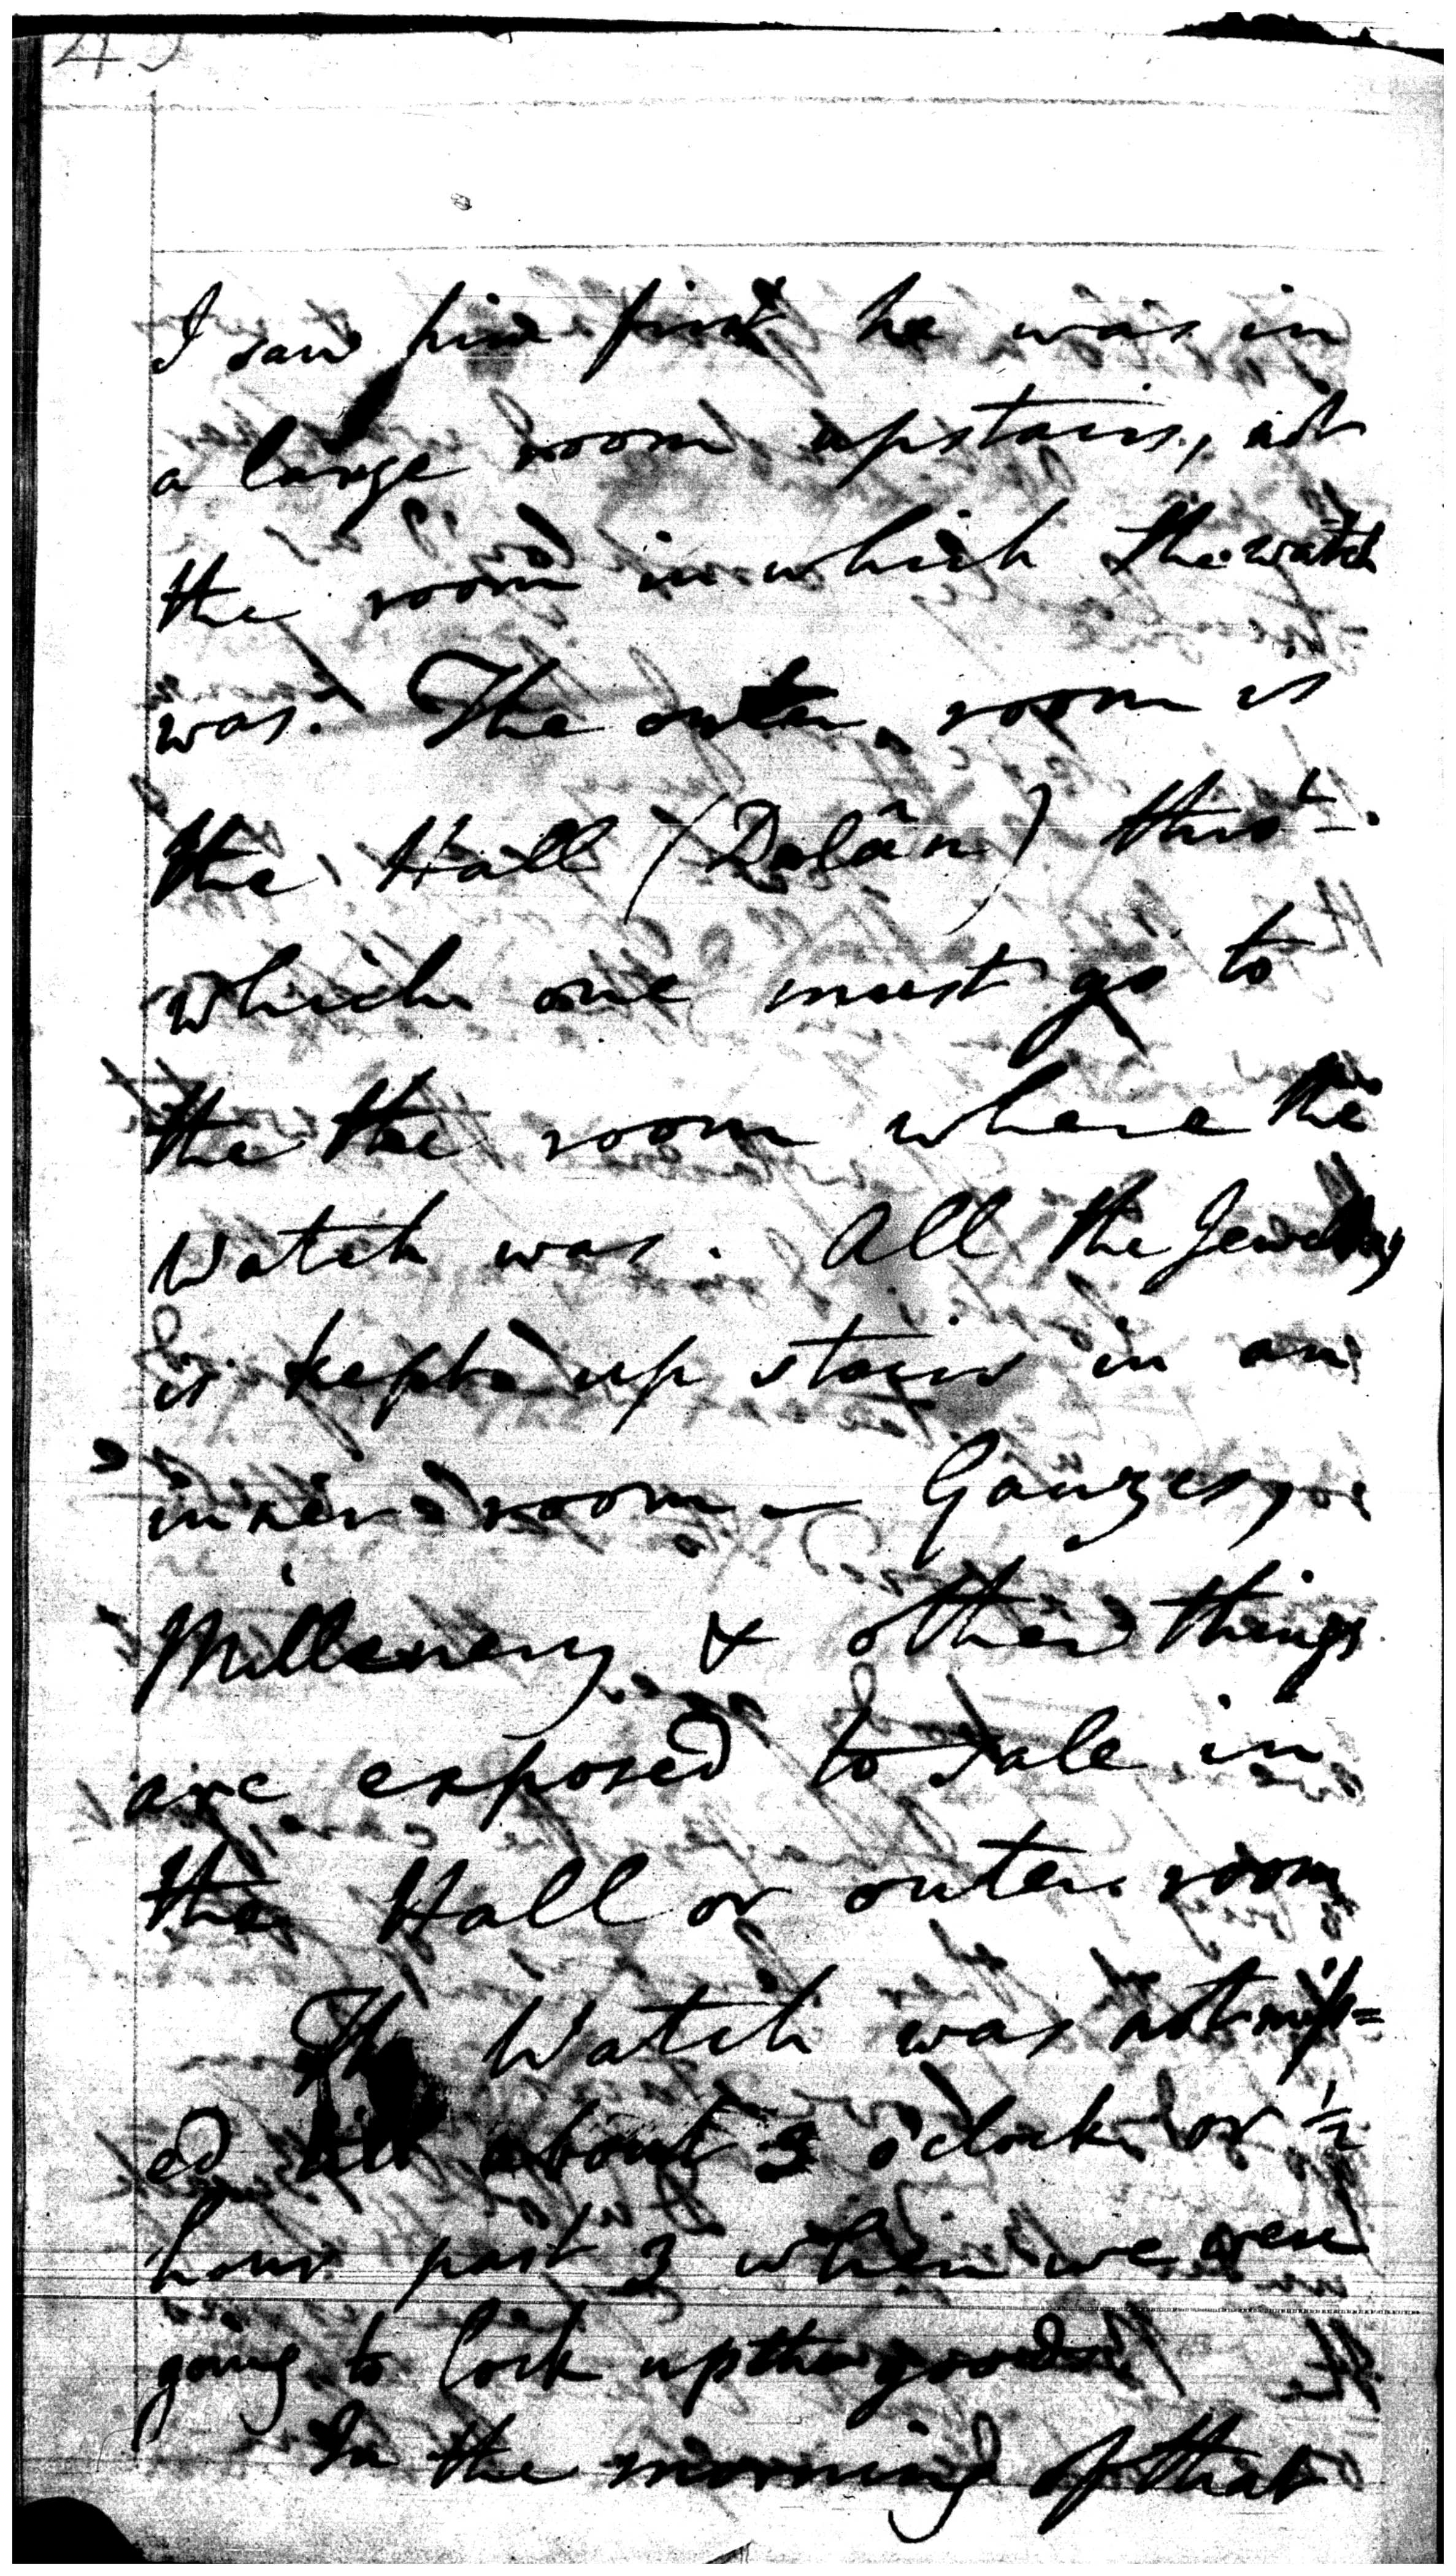 45
I saw him first he was in
a large room upstairs, not
the room in which the watch
was. The outer room is
the Hall (Dalân) thro'
which one must go to
the the room where the
Watch was. All the Jewellery
is kept up stairs in an
inner room — Gauzes,
Millenery & other things
are exposed to Sale in
the Hall or outer room
The Watch was not miss=
ed till about 3 o'clock or ½
hour past 3 when we were
going to lock up the goods
In the morning of that